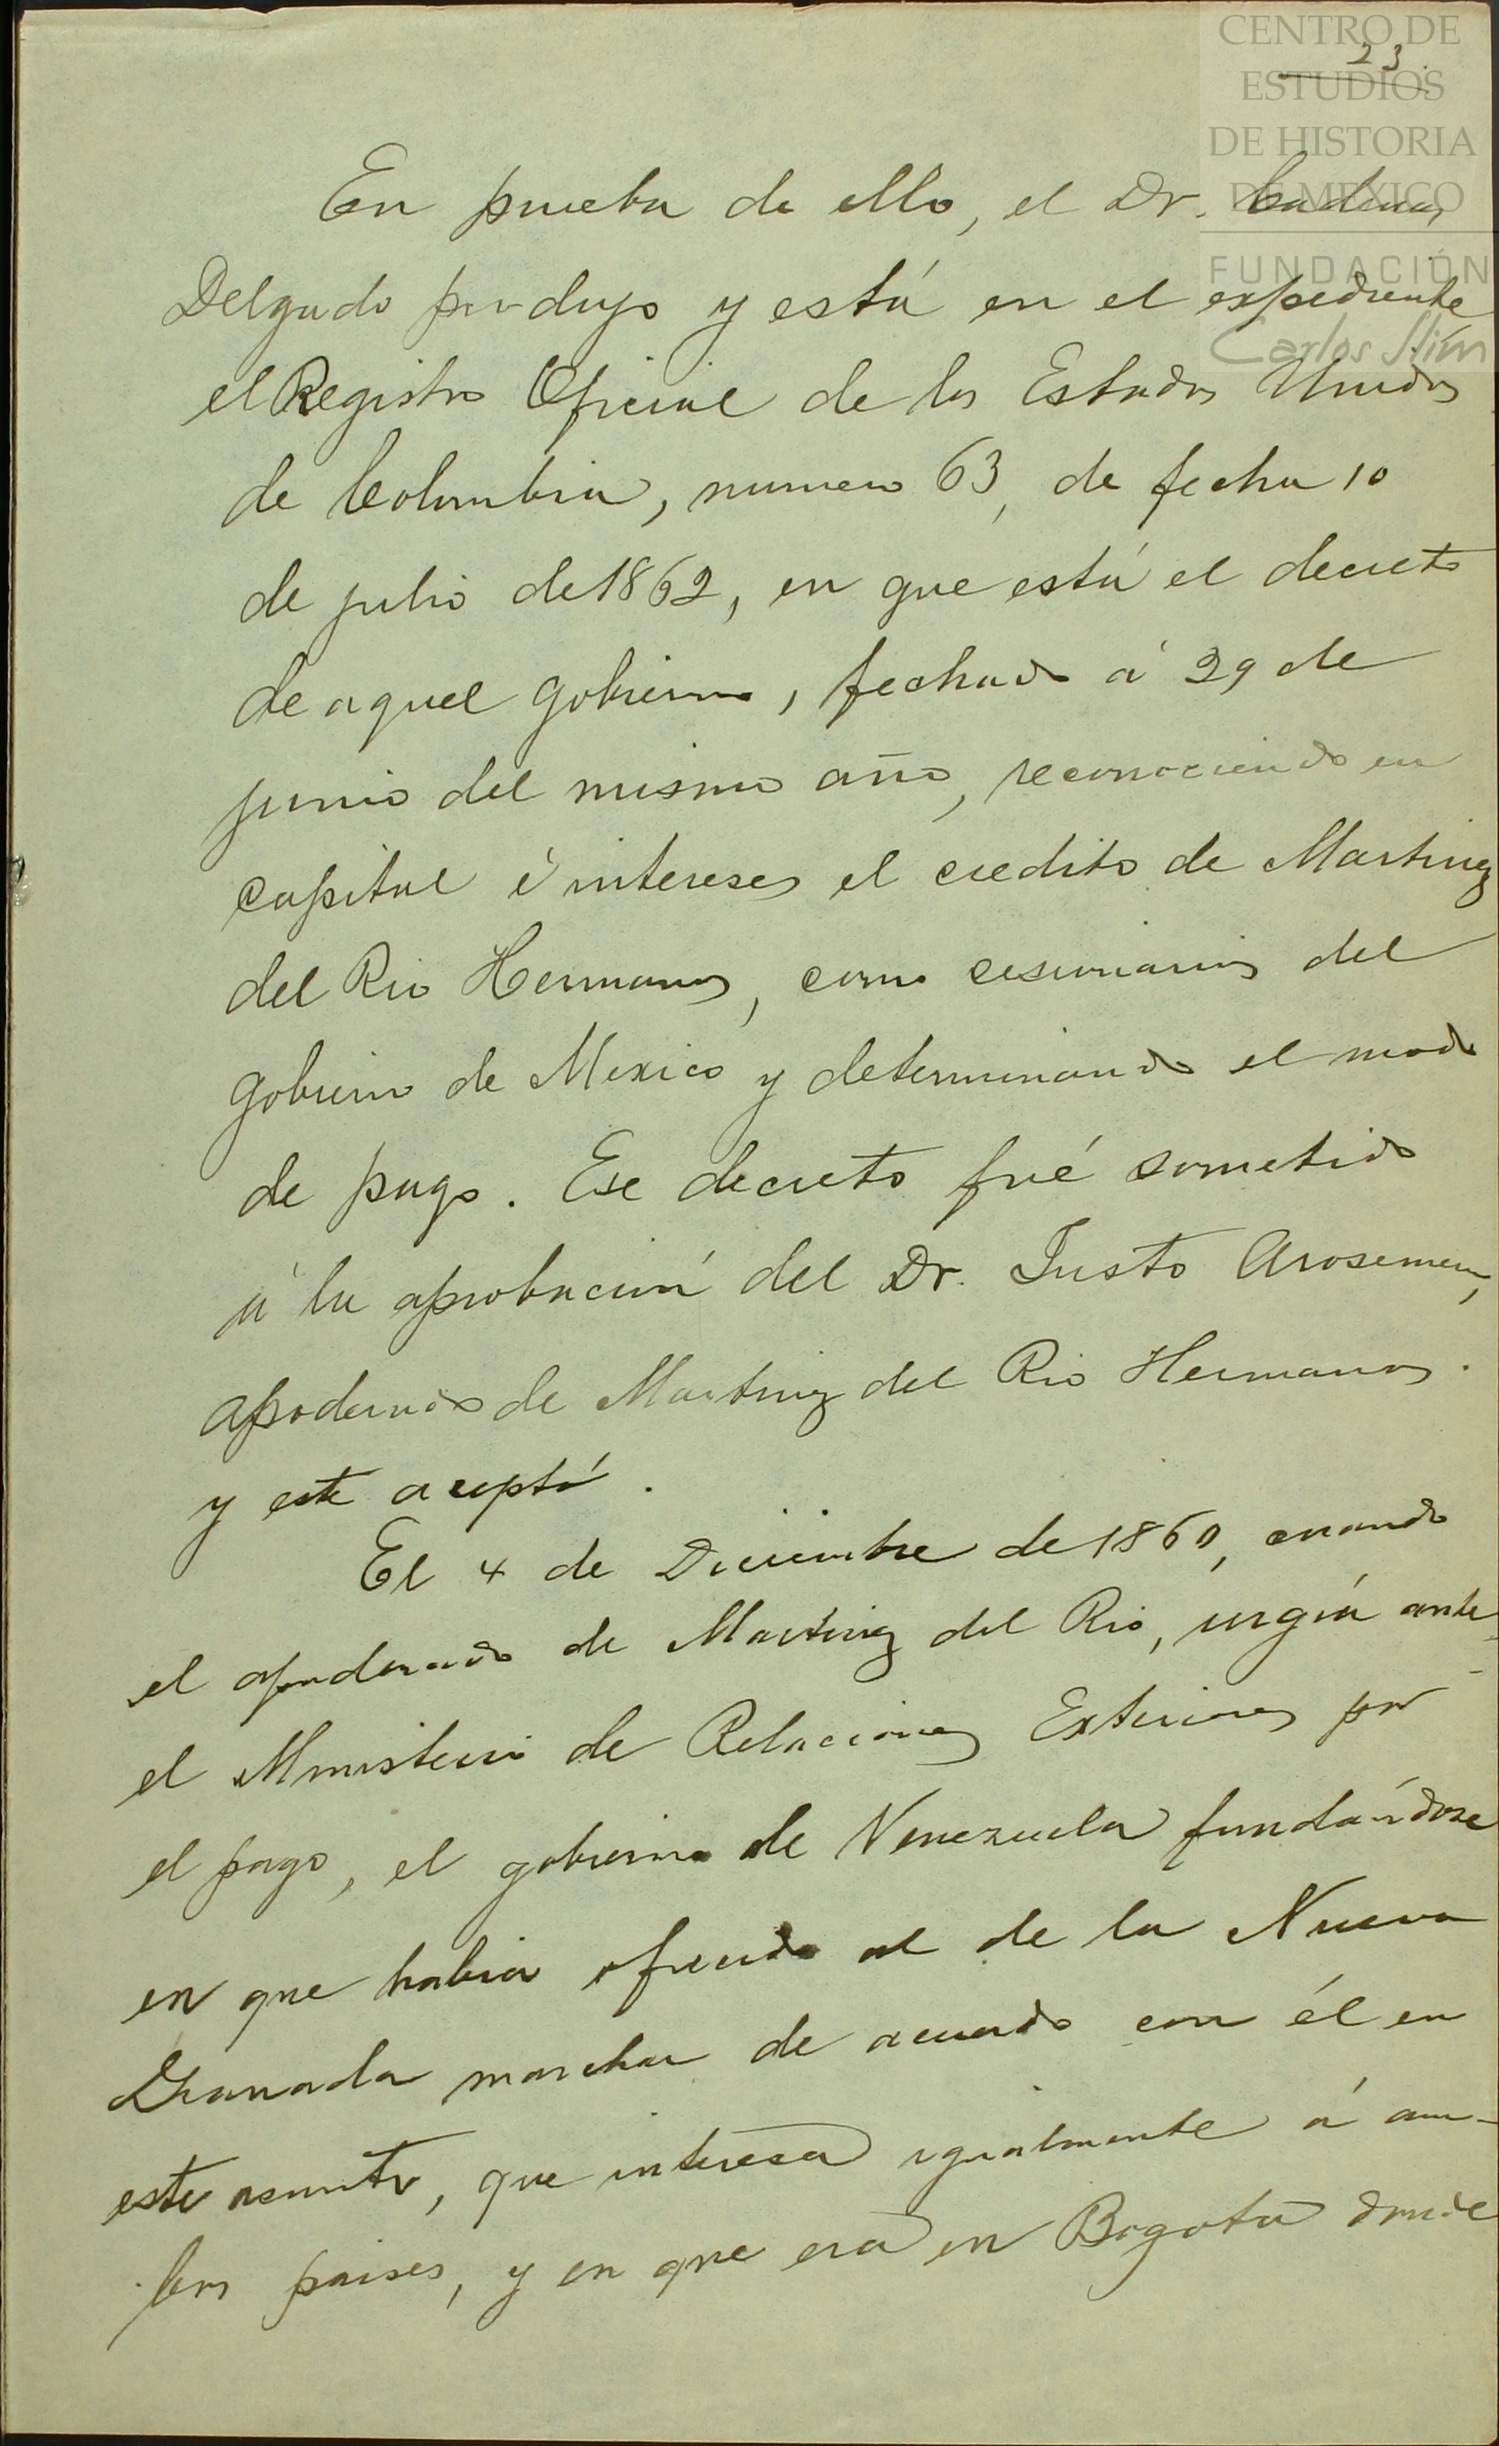 CENTRO DE
ESTUDIOS
DE HISTORIA
DE MEXICO
FUNDACIÓN
Carlos Slim
23.
En prueba de ello, el Dr. Cadenas
Delgado produjo y está en el expediente
el Registro Oficial de los Estados Unidos
de Colombia, numero 63, de fecha 10
de julio de 1862, en que está el decreto
de aquel gobierno, fechado á 29 de
junio del mismo año, reconociendo en
capital é intereses el credito de Martinez
del Rio Hermanos, como cesionarios del
gobierno de Mexico y determinando el modo
de pago. Ese decreto fué sometido
á la aprobacion del Dr. Justo Arosemena,
apoderado de Martinez del Rio Hermanos.
y este aceptó.
El 4 de Diciembre de 1860, cuando
el apoderado de Martinez del Rio, urgía ante
el Ministerio de Relaciones Exteriores por
el pago, el gobierno de Venezuela fundándose
en que habia ofrecido al de la Nueva
Granada marchar de acuerdo con él en
este asunto, que interesa igualmente á am-
bos paises, y en que era en Bogota donde